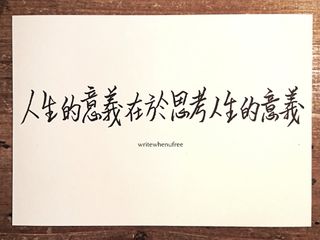 人生的意義在於思考人生的意義
writewhenufree